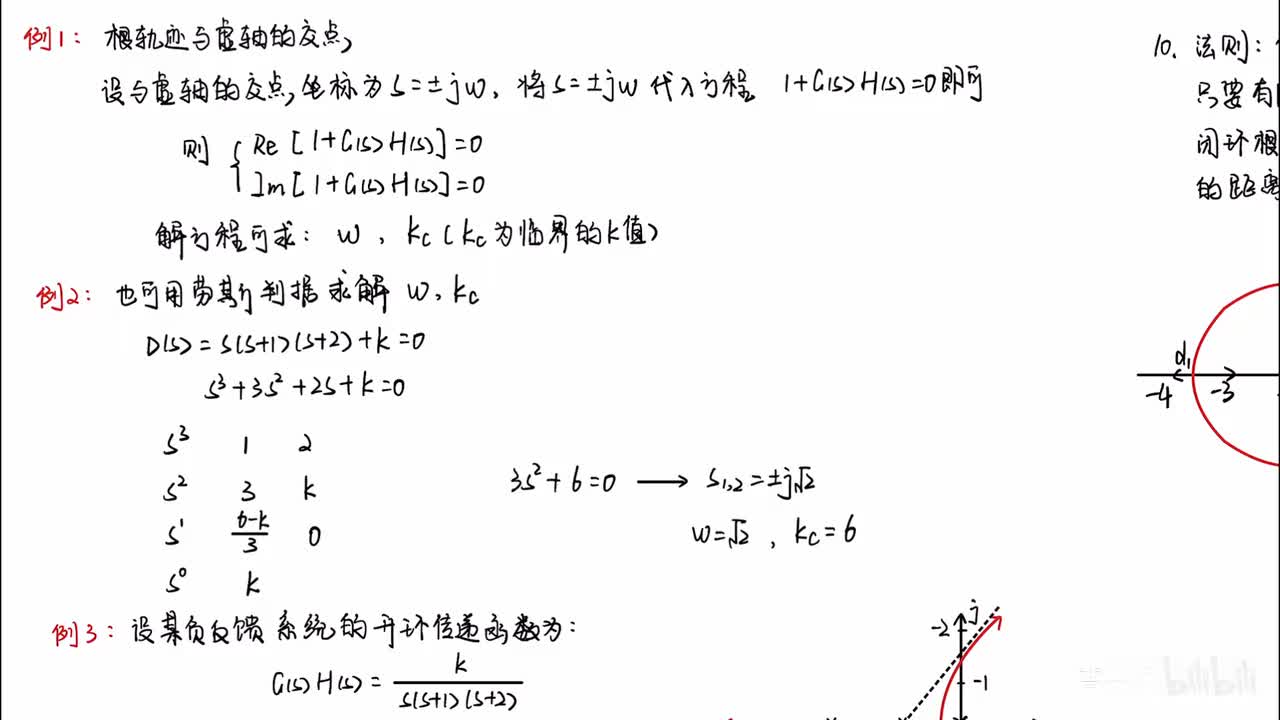 例1: 根轨迹与虚轴的交点,
设与虚轴的交点,坐标为 s=±jw, 将s=±jw 代入方程 1+G(s)H(s)=0即可
则 { Re [1+G(s)H(s)]=0
Im[1+G(s)H(s)]=0
解方程可求: w, kc (kc为临界的k值)
例2: 也可用劳斯判据求解 w, kc
D(s) = s(s+1)(s+2)+k=0
s³+3s²+2s+k=0
s³ 1 2
s² 3 k
s¹ (6-k)/3 0
s⁰ k
3s²+6=0 → s1,2=±j√2
w=√2, kc=6
例3: 设某负反馈系统的开环传递函数为:
G(s)H(s) = k/(s(s+1)(s+2))
10. 法则:
只要有
闭环根
的距离
d1
-4 -3
j
-2
-1
bilibili